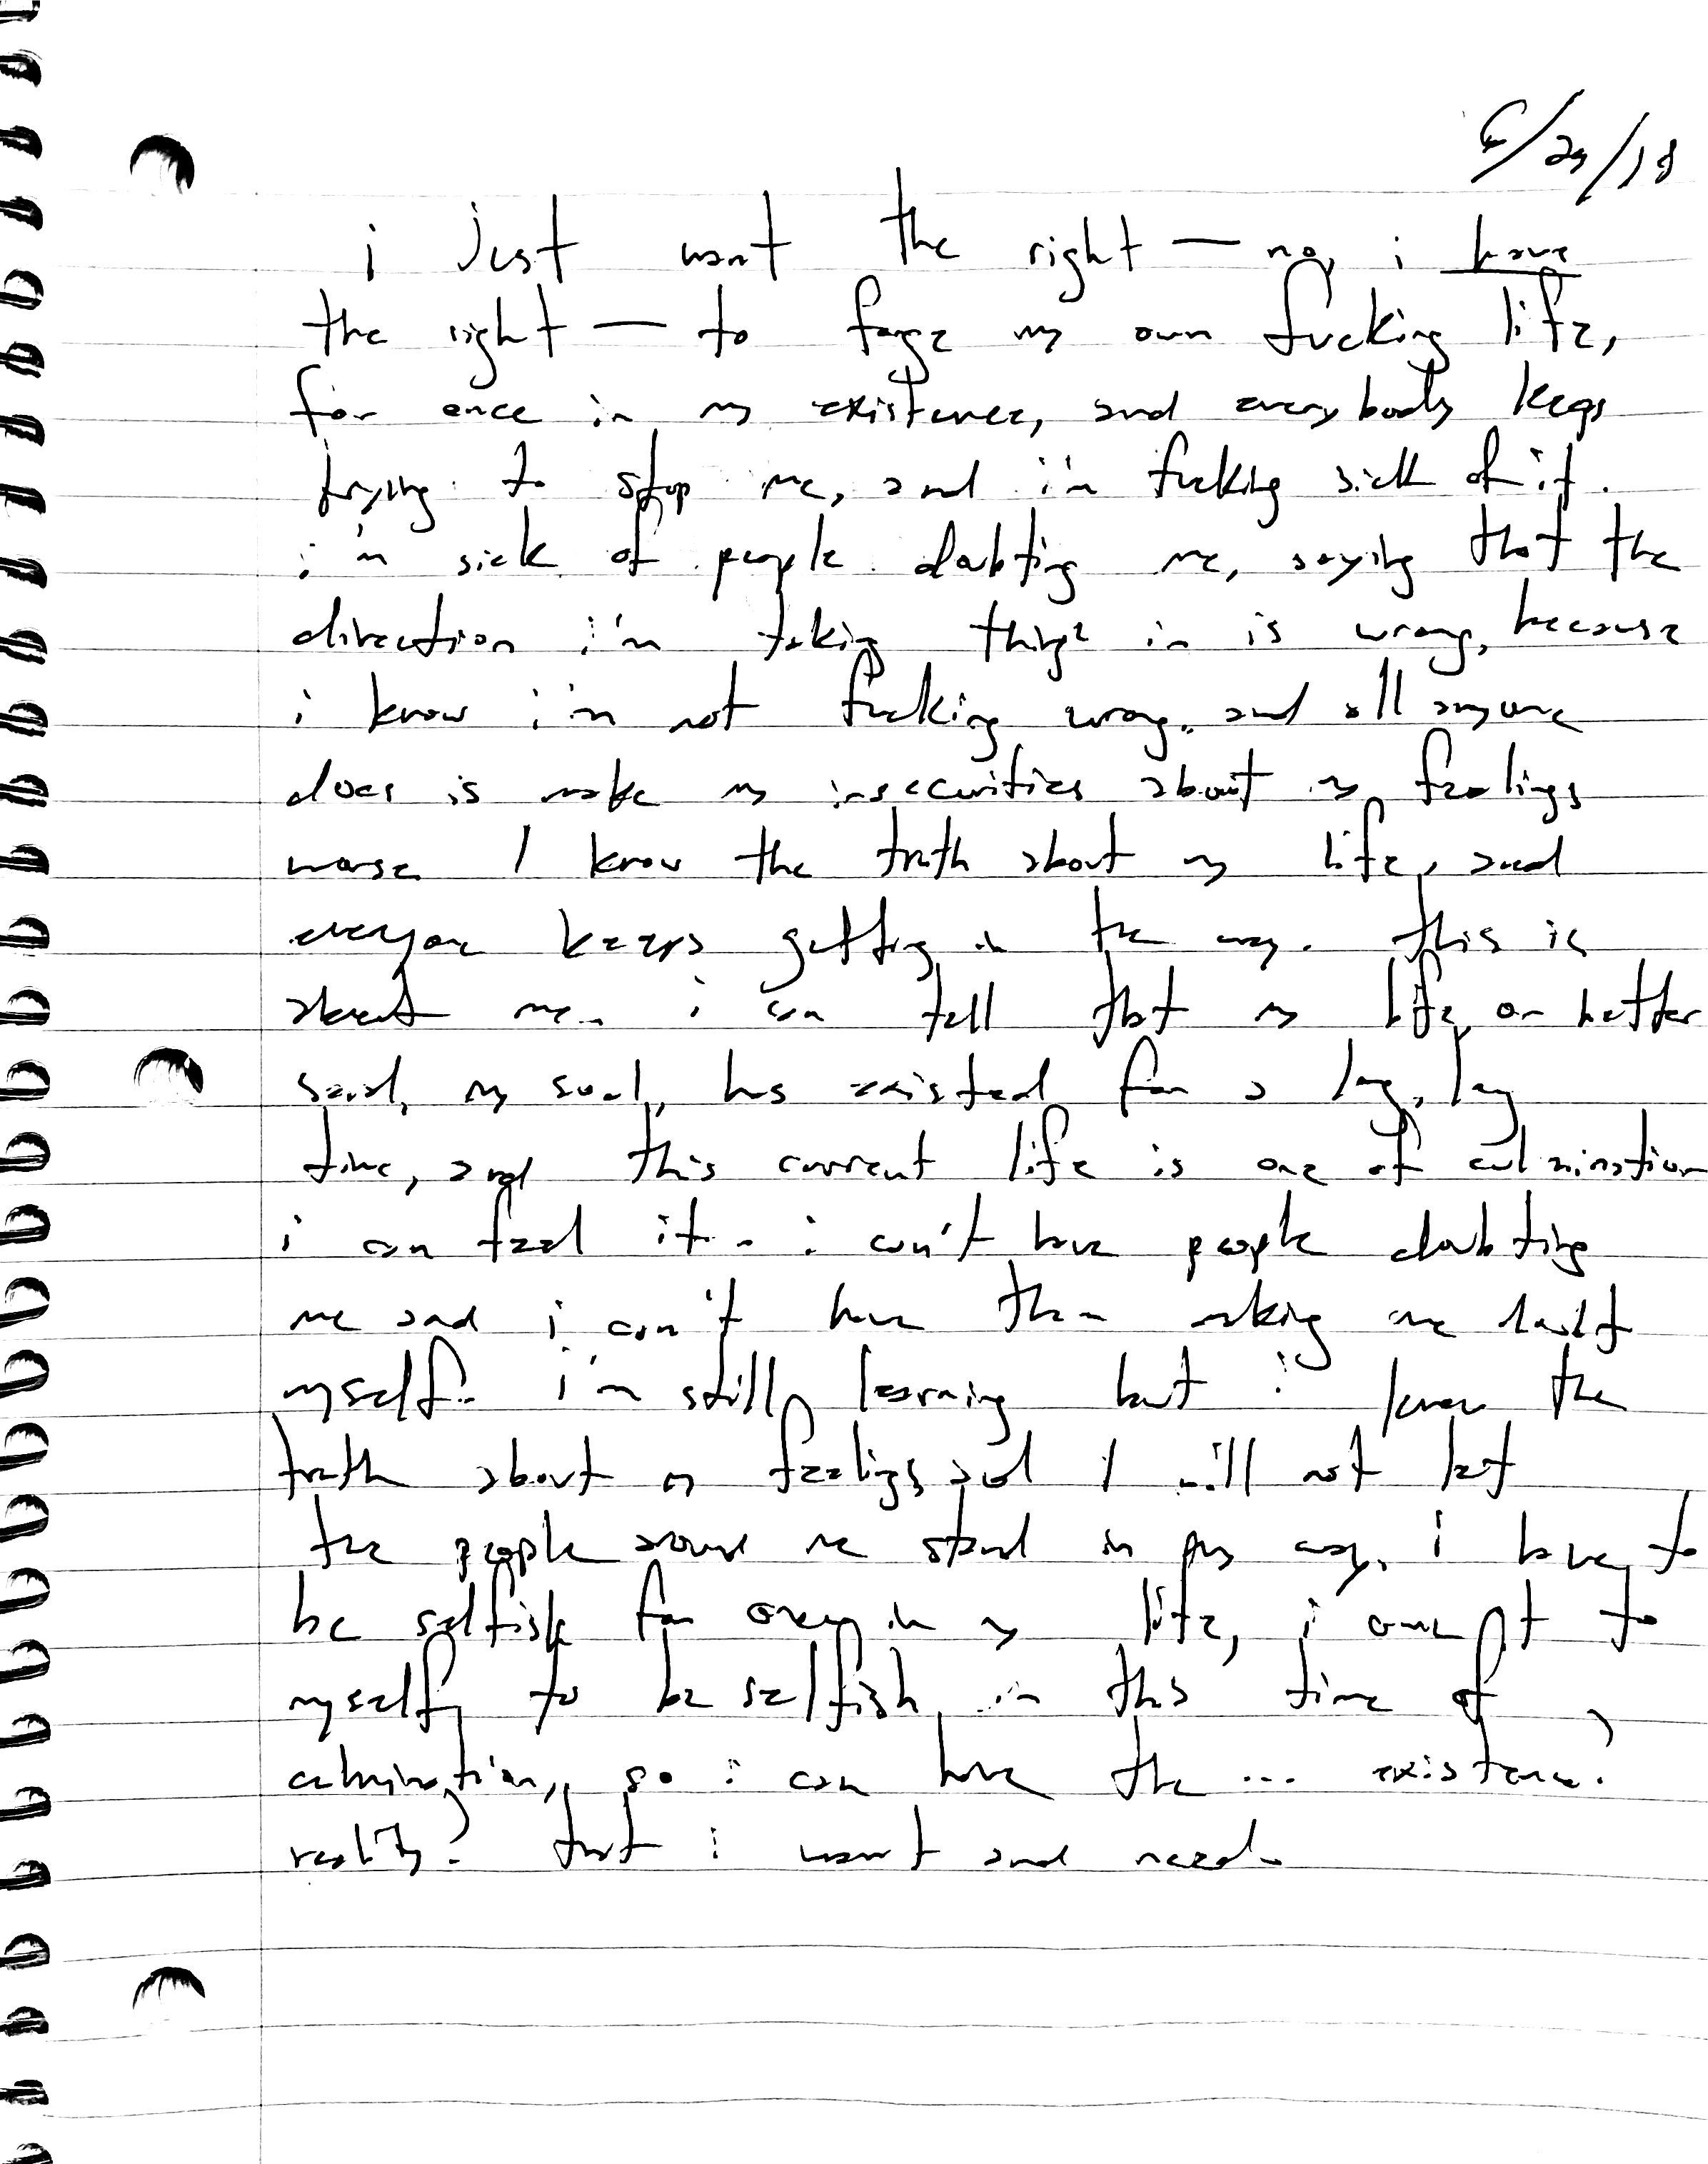 6/29/18
i just want the right — no, i have
the right — to forge my own fucking life,
for once in my existence, and everybody keeps
trying to stop me, and i'm fucking sick of it.
i'm sick of people doubting me, saying that the
direction i'm taking things in is wrong, because
i know i'm not fucking wrong. and all anyone
does is make my insecurities about my feelings
worse. I know the truth about my life, and
everyone keeps getting in the way. this is
about me. i can tell that my life, or better
said, my soul, has existed for a long, long
time, and this current life is one of culmination
i can feel it. i can't have people doubting
me and i can't have them making me doubt
myself. i'm still learning but i know the
truth about my feelings and I will not let
the people around me stand in my way. i have to
be selfish for once in my life, i owe it to
myself to be selfish in this time of
culmination, so i can have the ... existence?
reality? that i want and need.